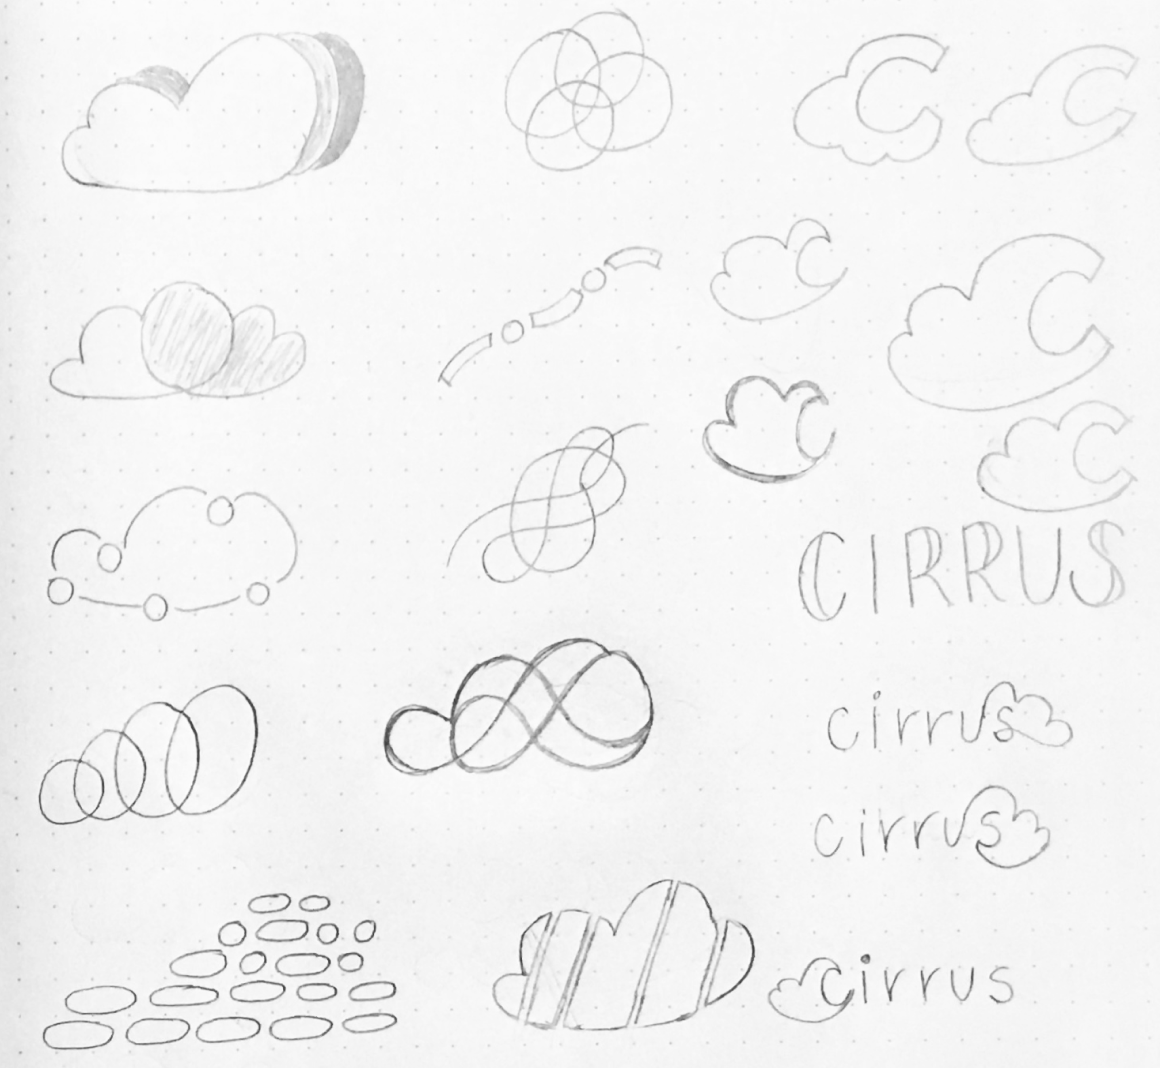 CIRRUS
cirrus
cirrus
cirrus